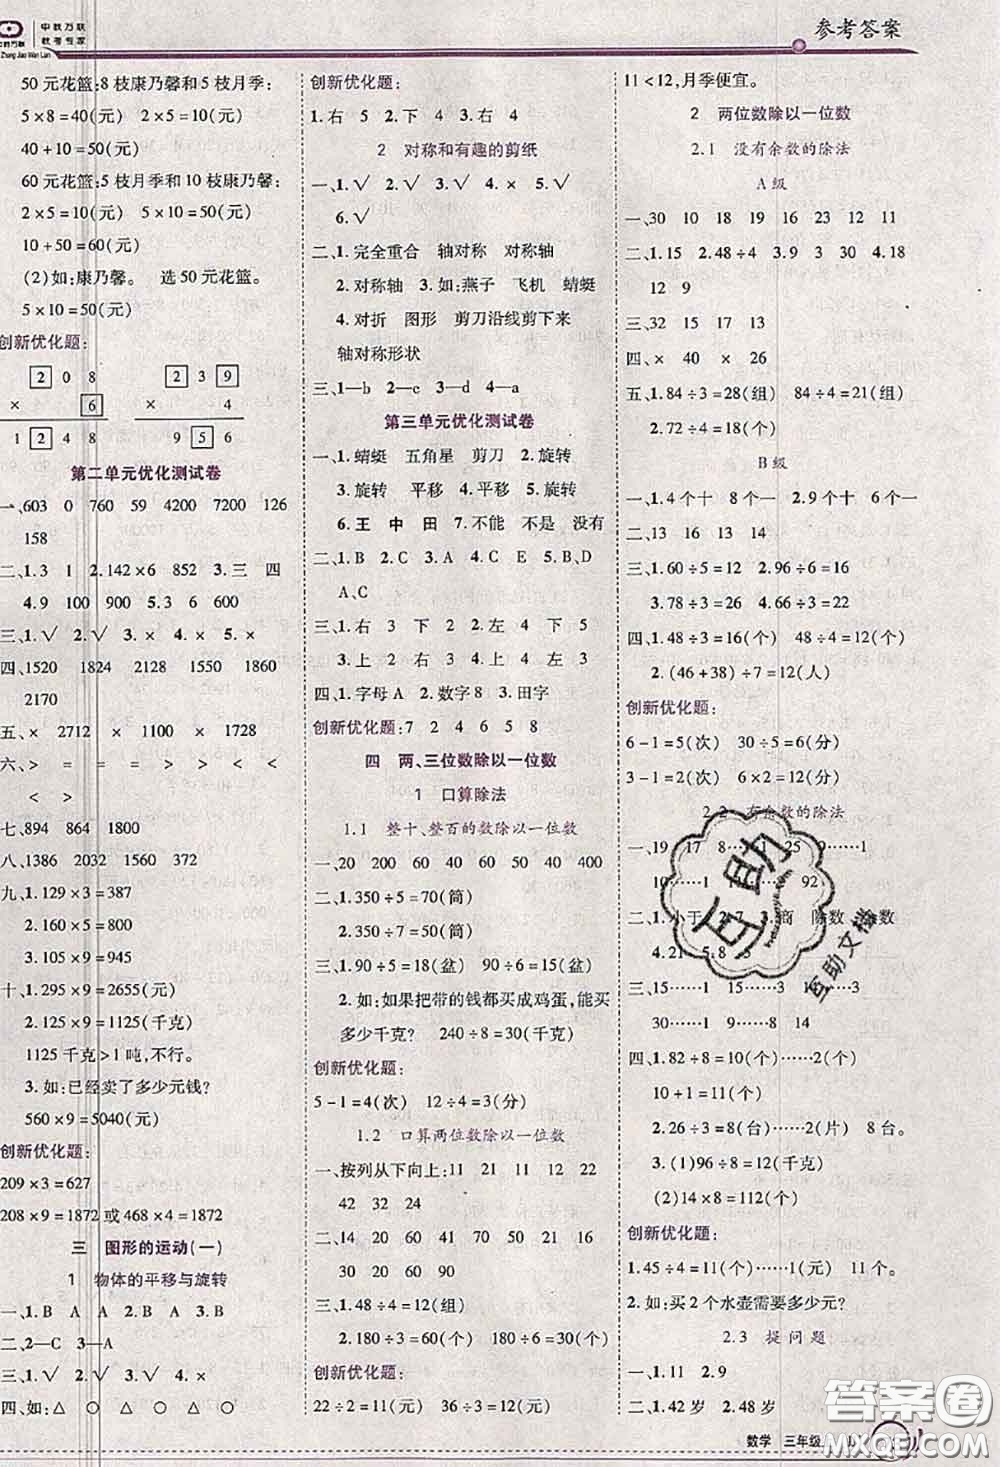 中教万联
教考专家
Zhong Jiao Wan Lian
参考答案
50元花篮:8枝康乃馨和5枝月季:
5×8=40(元) 2×5=10(元)
40+10=50(元)
60元花篮:5枝月季和10枝康乃馨:
2×5=10(元) 5×10=50(元)
10+50=60(元)
(2)如:康乃馨。 选50元花篮。
5×10=50(元)
创新优化题:
2 0 8   2 3 9
× 6   × 4
1 2 4 8   9 5 6
第二单元优化测试卷
一、603 0 760 59 4200 7200 126
158
二、1.3 1 2.142×6 852 3.三 四
4.9 100 900 5.3 6 600
三、1.√ 2.√ 3.× 4.× 5.×
四、1520 1824 2128 1550 1860
2170
五、× 2712 × 1100 × 1728
六、> = = = > > < <
< < >
七、894 864 1800
八、1386 2032 1560 372
九、1.129×3=387
2.160×5=800
3.105×9=945
十、1.295×9=2655(元)
2.125×9=1125(千克)
1125千克>1吨,不行。
3.如:已经卖了多少元钱?
560×9=5040(元)
创新优化题:
209×3=627
208×9=1872或468×4=1872
三 图形的运动(一)
1 物体的平移与旋转
一、1.B A A 2.B 3.B
二、2—C 3—A
三、1.√ 2.√ 3.√ 4.×
四、如:△ ○ △ ○ △ ○
创新优化题:
1.右 5 2.下 4 3.右 4
2 对称和有趣的剪纸
一、1.√ 2.√ 3.√ 4.× 5.√
6.√
二、1.完全重合 轴对称 对称轴
2.对称轴 3.如:燕子 飞机 蜻蜓
4.对折 图形 剪刀沿线剪下来
轴对称形状
三、1—b 2—c 3—d 4—a
第三单元优化测试卷
一、1.蜻蜓 五角星 剪刀 2.旋转
3.旋转 平移 4.平移 5.旋转
6.王 中 田 7.不能 不是 没有
二、1.B 2.C 3.A 4.C E 5.B、D
A、C
三、1.右 3 下 2 2.左 4 下 5
3.上 2 右 3 4.上 4 左 3
四、1.字母A 2.数字8 3.田字
创新优化题:7 2 4 6 5 8
四 两、三位数除以一位数
1 口算除法
1.1 整十、整百的数除以一位数
一、20 200 60 50 40 100 400
二、1.350÷5=70(筒)
2.350÷7=50(筒)
三、1.90÷5=18(盆) 90÷6=15(盆)
2.如:如果把带的钱都买成鸡蛋,能买
多少千克? 240÷8=30(千克)
创新优化题:
5-1=4(次) 12÷4=3(分)
1.2 口算两位数除以一位数
一、按列从下向上:11 21 11 12 22
42 32 24
二、14 20 11 21 70 51 33 16
30 20 60 90
三、1.48÷4=12(组)
2.180÷3=60(个) 180÷6=30(个)
创新优化题:
22÷2=11(元) 36÷3=12(元)
11<12,月季便宜。
2 两位数除以一位数
2.1 没有余数的除法
A级
一、30 10 18 19 16 23 12 11
二、1.15 2.48÷4 3.30÷2 4.18
12 9
三、32 15 17 13
四、× 40 × 26
五、1.84÷3=28(组) 84÷4=21(组)
2.72÷4=18(个)
B级
一、1.4个十 8个一 2.9个十 6个一
二、14 13 16 13 14
三、1.60÷5=12 2.96÷6=16
3.78÷6=13 4.66÷3=22
四、1.48÷3=16(个) 48÷4=12(个)
2.(46+38)÷7=12(人)
创新优化题:
6-1=5(次) 30÷5=6(分)
3-1=2(次) 6×2=12(分)
2.2 有余数的除法
一、19 17 8……1 25 9……1
10……1 3 92
二、1.小于 2.7 3.商 除数 余数
4.21 5.8 3
三、15……1 10……3 15……3
30……1 9……8 14
四、1.82÷8=10(个)……2(个)
10+1=11(个)
2.26÷3=8(台)……2(片) 8台。
3.(1)96÷8=12(千克)
(2)14×8=112(元)
创新优化题:
1.45÷4=11(个)……1(个)
2.如:买2个水壶需要多少元?
2.3 提问题
一、1.11 2.9
二、1.42岁 2.48岁
数学 三年级
互助
互助文档
答案圈
MXQE.COM